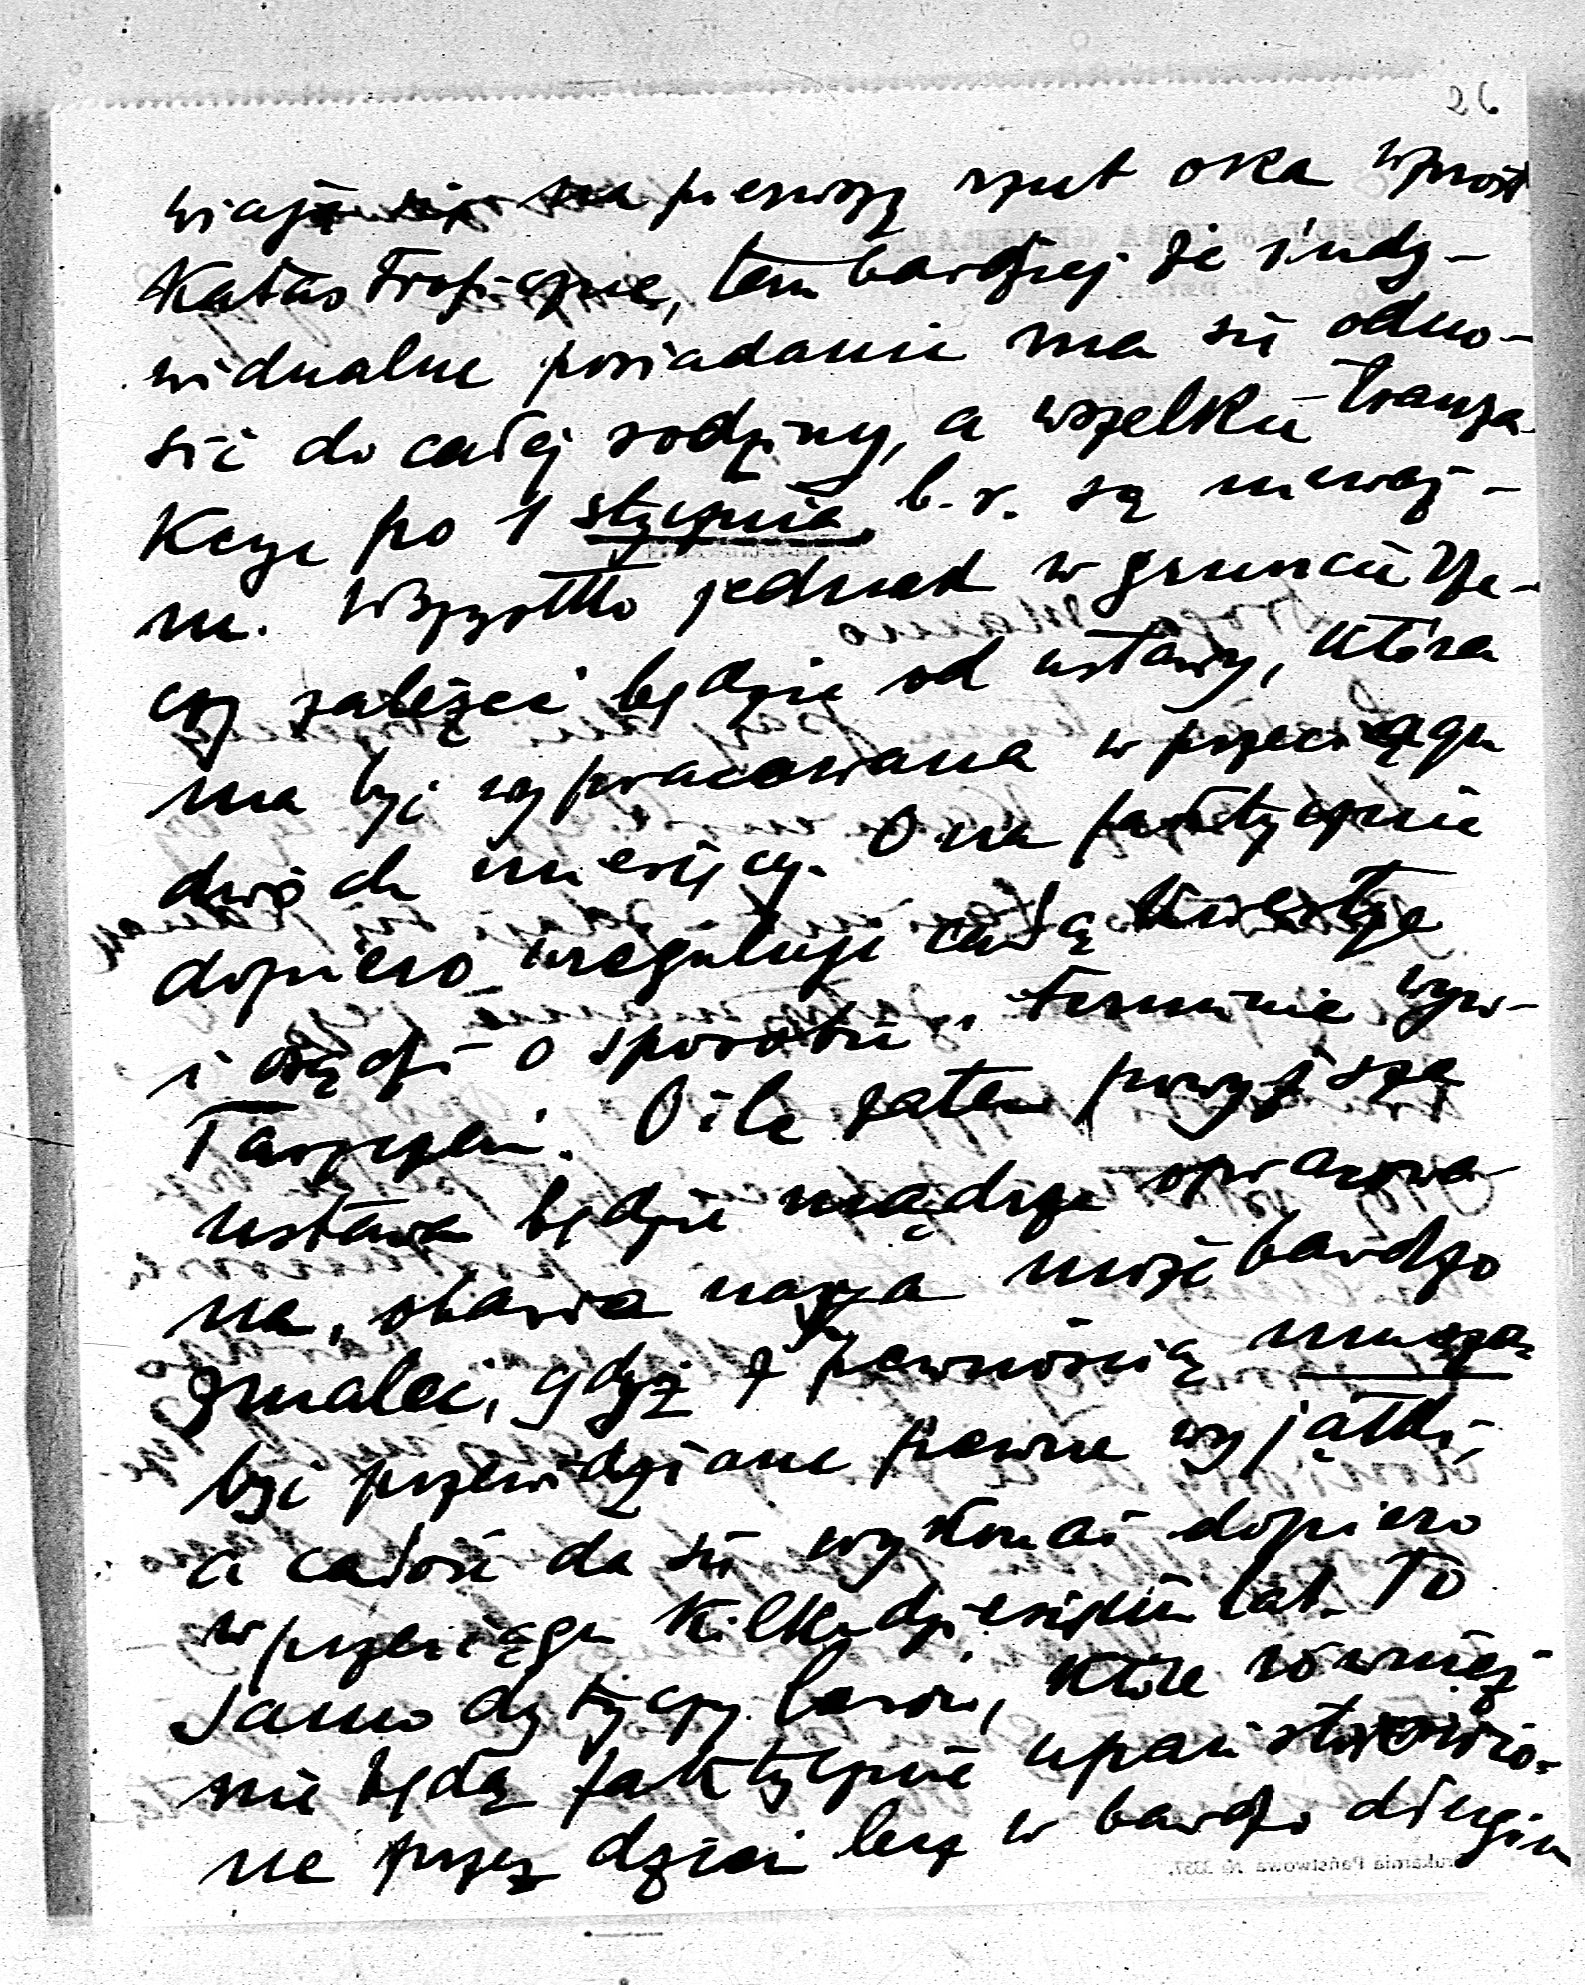 26
wiają się na pierwszy rzut oka wprost
katastroficzne, tem bardziej że indy-
widualne posiadanie ma się odno-
sić do całej rodziny, a wszelkie tranza-
kcye po 1 stycznia b.r. są nieważ-
ne. Wszystko jednak w gruncie rze-
czy zależeć będzie od ustawy, która
ma być wypracowana w przeciągu
dwóch miesięcy. Ona faktycznie
dopiero ureguluje całą kwestyę
i osądzi o sposobie i terminie wyw-
łaszczeń. O ile zatem powyższa
ustawa będzie mądrze opracowa-
na, obawa nasza może bardzo
zmaleć, gdyż z pewnością muszą
być przewidziane pewne wyjątki,
a całość da się wykonać dopiero
w przeciągu kilkudziesięciu lat. To
samo dotyczy lasów, które również
nie będą faktycznie upaństwowio-
ne przez dzień lecz w bardzo długim